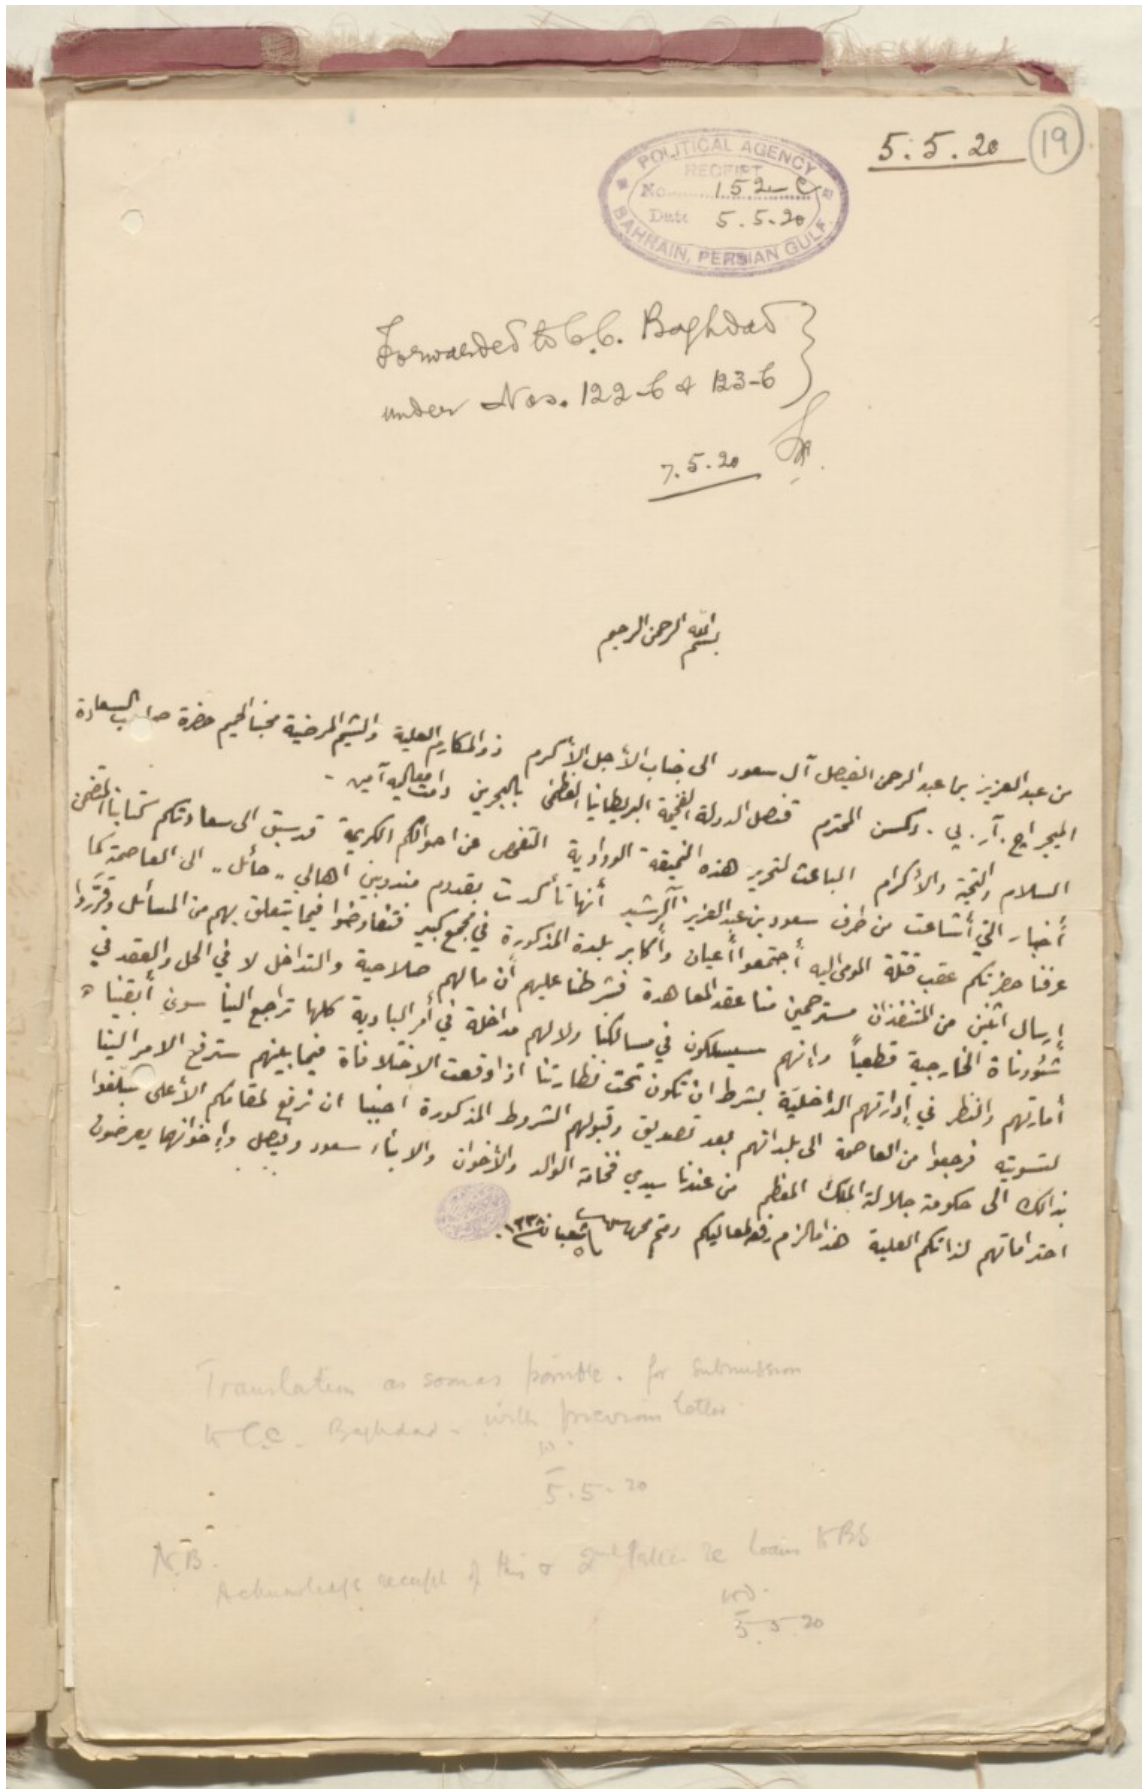 5.5.20
19
POLITICAL AGENCY
RECEIPT
No. 152-C
Date 5.5.20
BAHRAIN, PERSIAN GULF.
Forwarded to C.C. Baghdad
under Nos. 122-C & 123-C
7.5.20
بسم الله الرحمن الرحيم
من عبد العزيز بن عبد الرحمن الفيصل آل سعود الى جناب الأجل الأكرم ذو المكارم العلية والشيم المرضية محبنا الحميم حضرة صاحب السعادة
الميجر اچ. آر. پي. دكسن المحترم قنصل الدولة الفخيمة البريطانيا العظمى بالبحرين دامت معاليه آمين -
السلام والتحية والأكرام الباعث لتحرير هذه النميقة الودادية التفحص عن احوالكم الكريمة قد سبق الى سعادتكم كتابنا المتضمن
أخبار التي أشاعت من طرف سعود بن عبد العزيز آل رشيد أنها تأكدت بقدوم مندوبين أهالي "حائل" الى العاصمة كما
عرفنا حضرتكم عقب قتلة المومى اليه أجتمعوا أعيان وأكابر بلدة المذكورة في مجمع كبير فتفاوضوا فيما يتعلق بهم من المسائل وقرروا
إرسال اثنين من المتنفذان مسترحمين منا عقد المعاهدة فشرطنا عليهم أن مالهم صلاحية والتداخل لا في الحل والعقد في
شئوناة الخارجية قطعياً وإنهم سيسلكون في مسالكنا ولا لهم مداخلة في أمر البادية كلها تراجع الينا سوى أبقينا
أمارتهم والنظر في إدارتهم الداخلية بشرط ان تكون تحت نظارتنا اذا وقعت الاختلافاة فيما بينهم سترفع الامر الينا
لتسويته فرجعوا من العاصمة الى بلدانهم بعد تصديق وقبولهم الشروط المذكورة احببنا ان نرفع لمقامكم الأعلى تبلغوا
بذالك الى حكومة جلالة الملك المعظم من عندنا سيدي فخامة الوالد والأخوان والابناء سعود وفيصل وإخوانهما يعرضون
احتراماتهم لذاتكم العلية هذا ما لزم رفعه لمعاليكم ودمتم محروسين شعبان ١٣٣٨
Translation as soon as possible. for submission
to C.C. Baghdad. with previous letter.
5.5.20
N.B.
Acknowledge receipt of this & 2nd letter re loan to BS
5.5.20